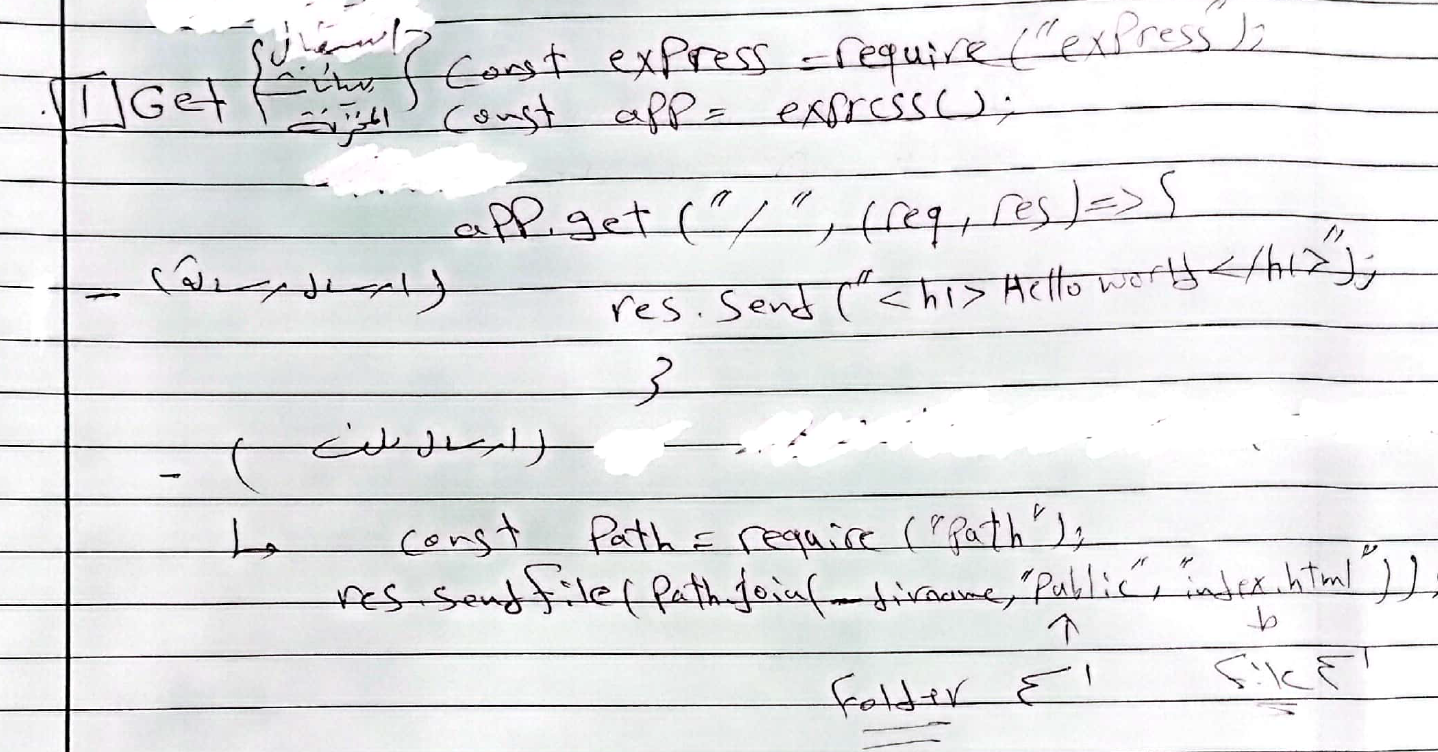 1 Get { استقبال بيانات } const express = require("express");
const app = express();
app.get("/", (req, res) => {
- (ارسال رسالة) res.send("<h1> Hello world </h1>");
}
- (ارسال ملف)
↳ const Path = require("Path");
res.sendfile(Path.join(__dirname, "Public", "index.html"));
↑ ↳
Folder ال File ال